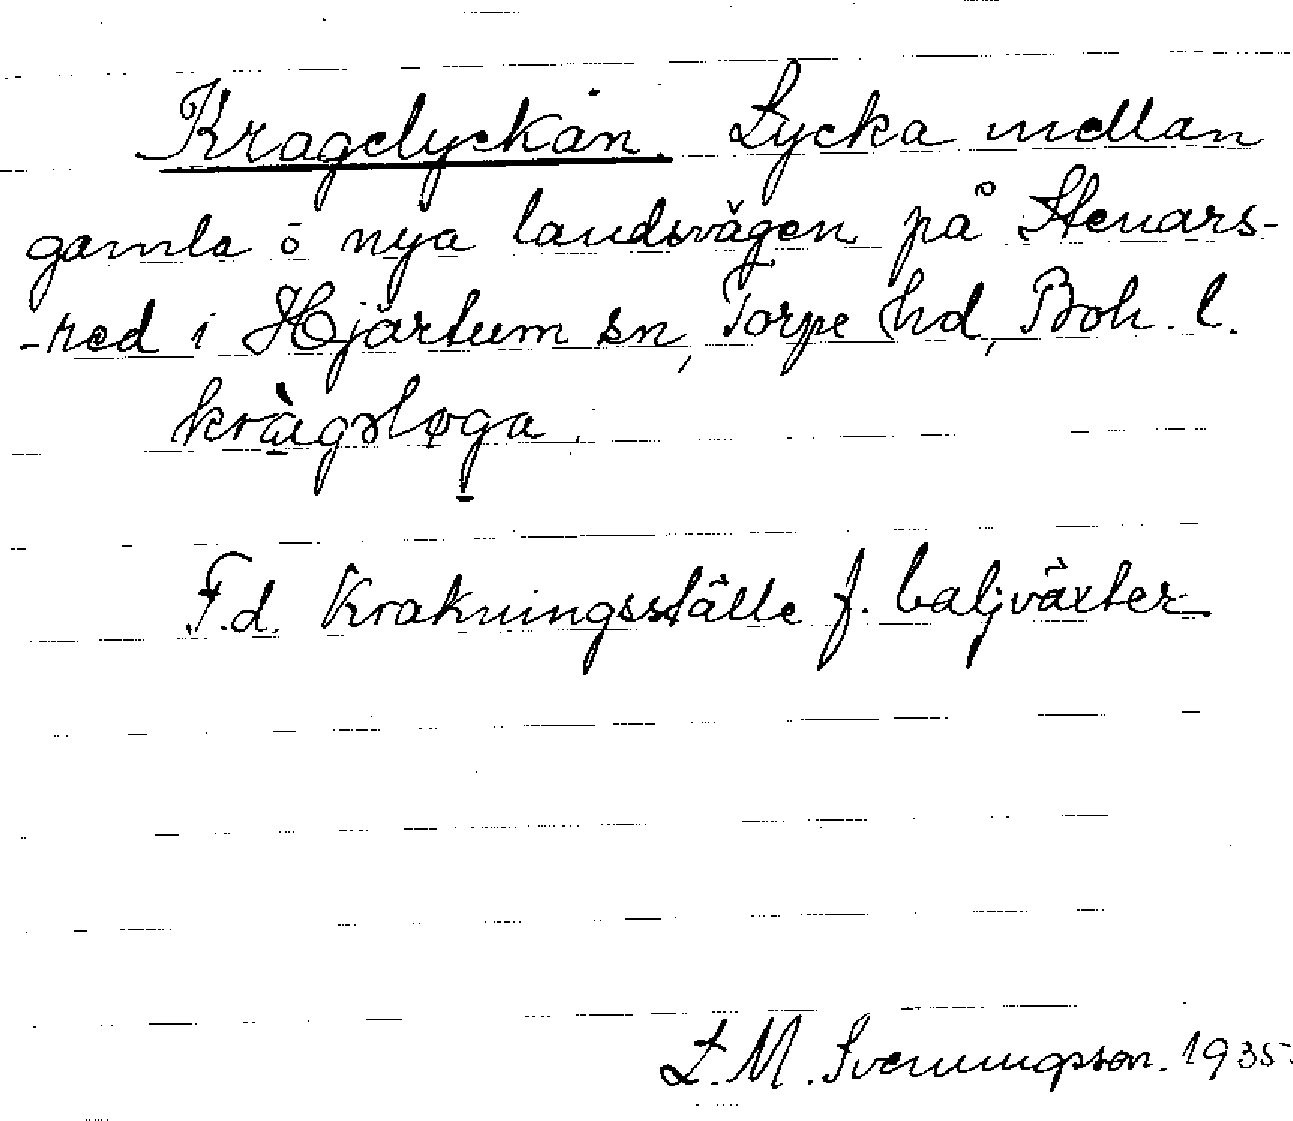 Kragelyckan. Lycka mellan
gamla o nya landsvägen på Stenars-
-red i Hjärtum sn, Torpe hd, Boh. l.
kràgǝløga.
F.d. Krakningsställe f. baljväxter
L. M. Svenungsson. 1935.